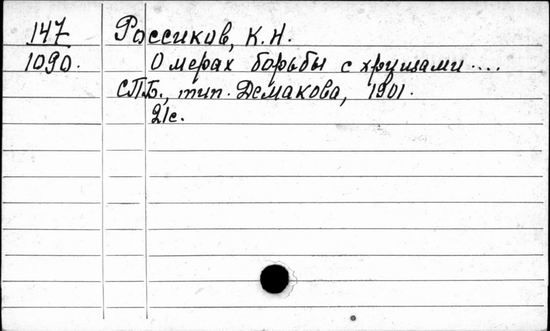 147 Россиков, К.Н.
1090. О мерах борьбы с хрущами....
СПБ., тип. Демакова, 1901.
21с.